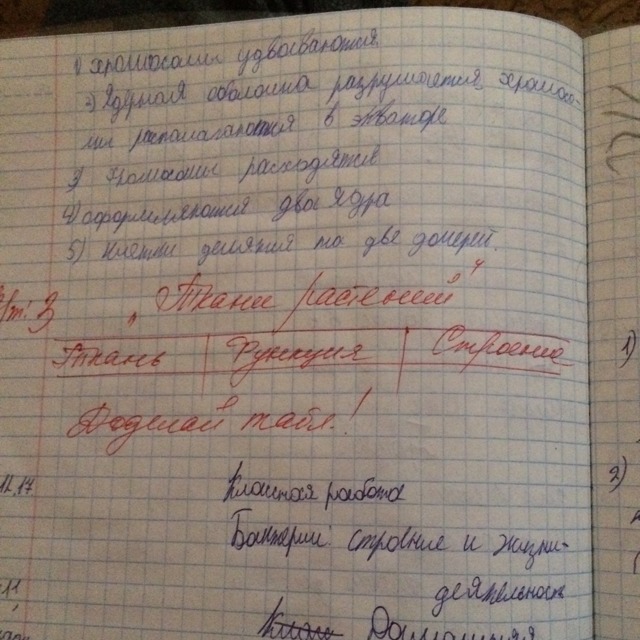 1) хромосомы удваиваются
2) Ядерная оболочка разрушается, хромосо-
мы располагаются в экваторе
3) Хромосомы расходятся
4) оформляются два ядра
5) клетки деления на две дочерей.
„Ткани растений"
3
Ткань Функция Строение
Доделай табл!
Классная работа
Бактерии: строние и жизне-
деятельность
1)
3)